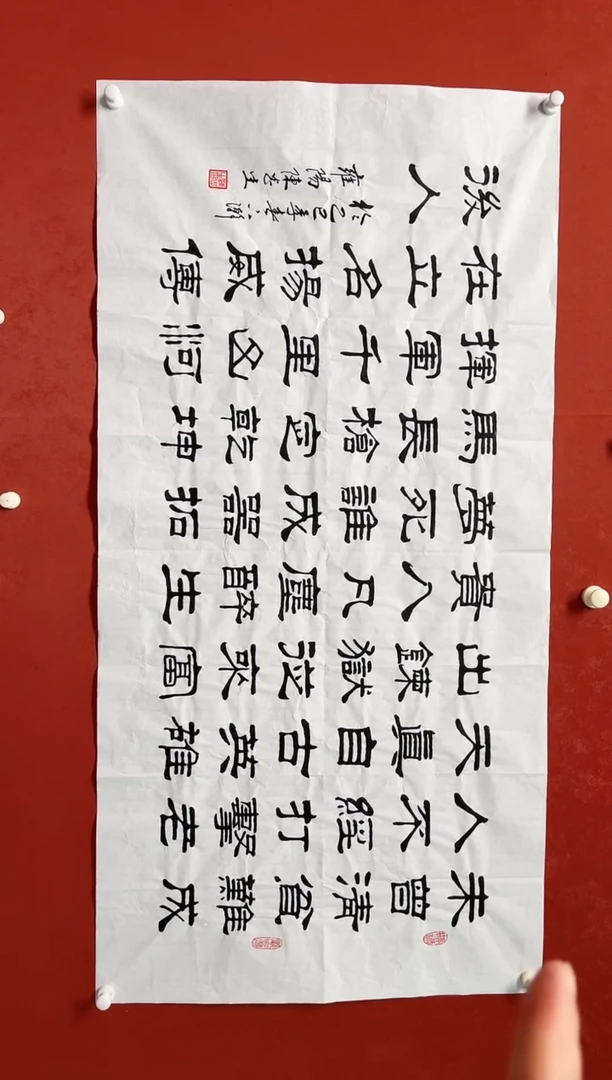 未曾清貧難成
人不經打擊老
天真自古英雄
出鍊獄從來富
貴入凡塵醉生
夢死誰成器拓
馬長槍定乾坤
揮軍千里山河
在立名揚威傳
後人
於乙巳年春
雍陽陳